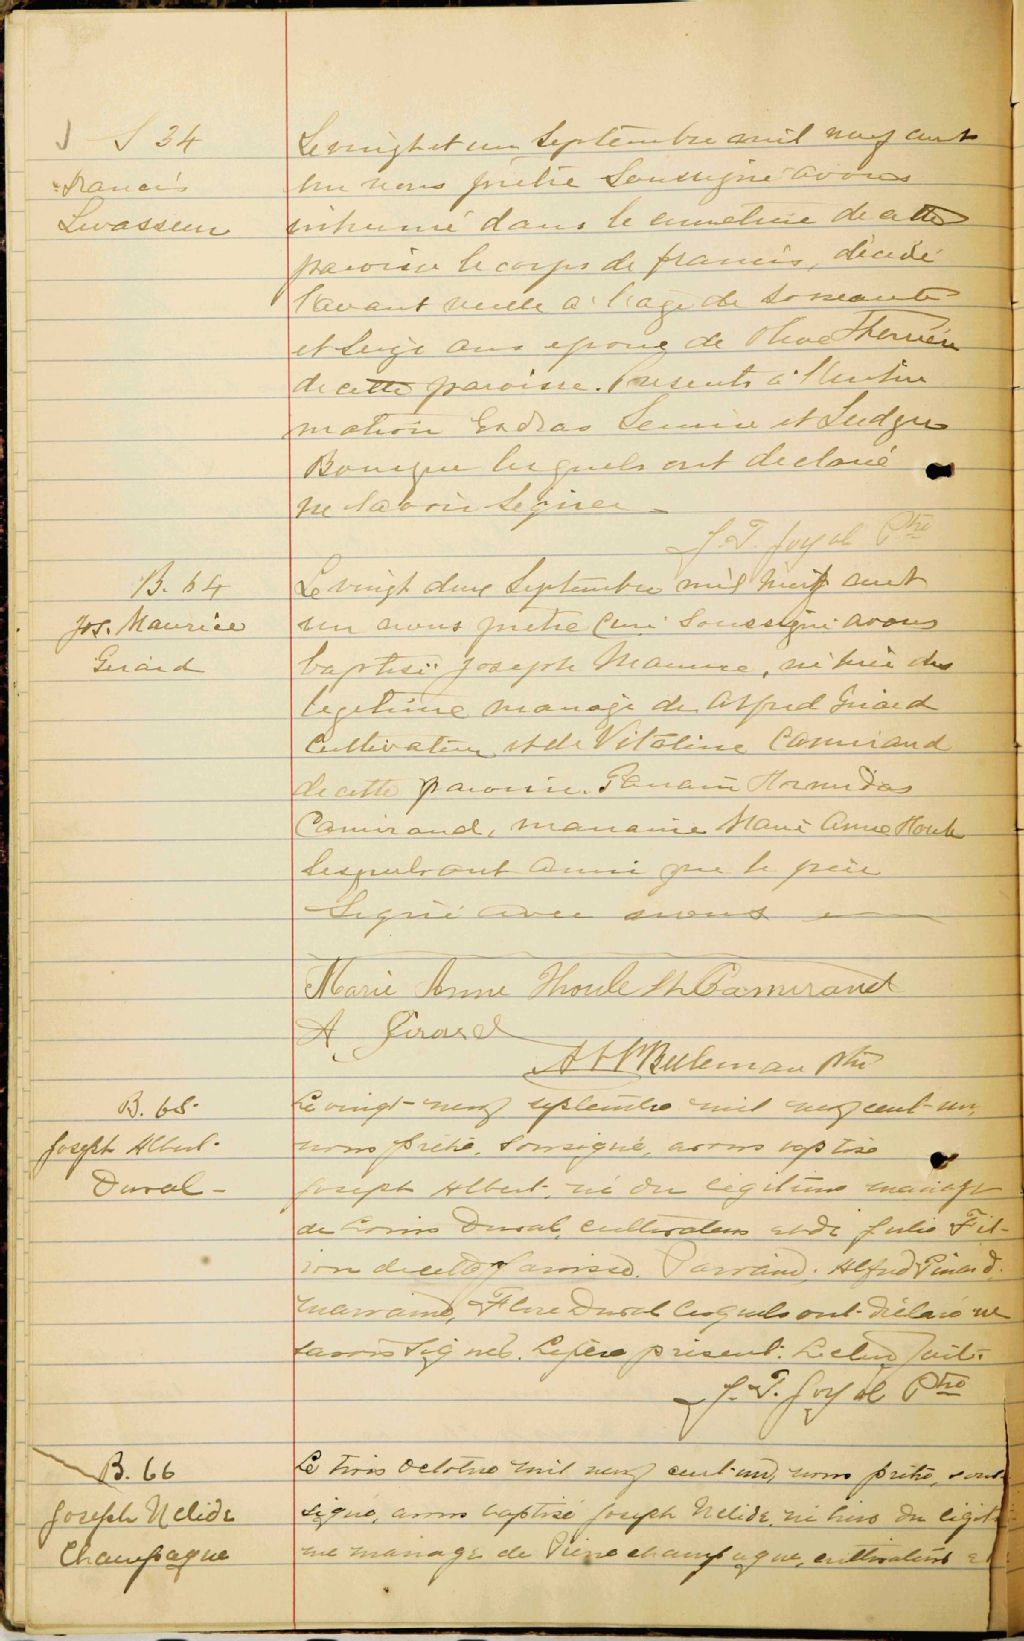 S 34
Francis
Levasseur
Le vingt et un Septembre mil neuf cent
un nous prêtre Soussigné avons
inhumé dans le cimetière de cette
paroisse le corps de francis, décédé
l'avant veille à l'age de soixante
et Seize ans epoux de Olive Therrien
de cette paroisse. Presents à l'inhu
mation Esdras et Ludger
Bourque lesquels ont declaré
ne Savoir Signer
J. T. Joyal Ptre
B. 64
Jos. Maurice
Girard
Le vingt deux Septembre mil neuf cent
un nous prêtre Curé Soussigné avons
baptisé Joseph Maurice, né hier du
legitime mariage de Alfred Girard
Cultivateur et de Vitaline Camirand
de cette paroisse. Parrain Hormidas
Camirand, marraine Marie Anne Houle
lesquels ont Aussi que le père
Signé avec nous
Marie Anne Houle H. Camirand
A. Girard
Ptre
B. 65
Joseph Albert
Duval
Le vingt-neuf septembre mil neuf cent-un,
nous prêtre, soussigné, avons baptisé
Joseph Albert, né du légitime mariage
de Louis Duval, cultivateur et de Julie Fil-
ion de cette paroisse. Parrain, Alfred Pinard,
marraine, Flore Duval lesquels ont déclaré ne
savoir signer. Le père présent. Lecture faite.
J. T. Joyal Ptre
B. 66
Joseph Nelide
Champagne
Le trois Octobre mil neuf cent-un, nous prêtre, sous
signé, avons baptisé Joseph Nelide, né hier du légiti
me mariage de Pierre champagne, cultivateur e